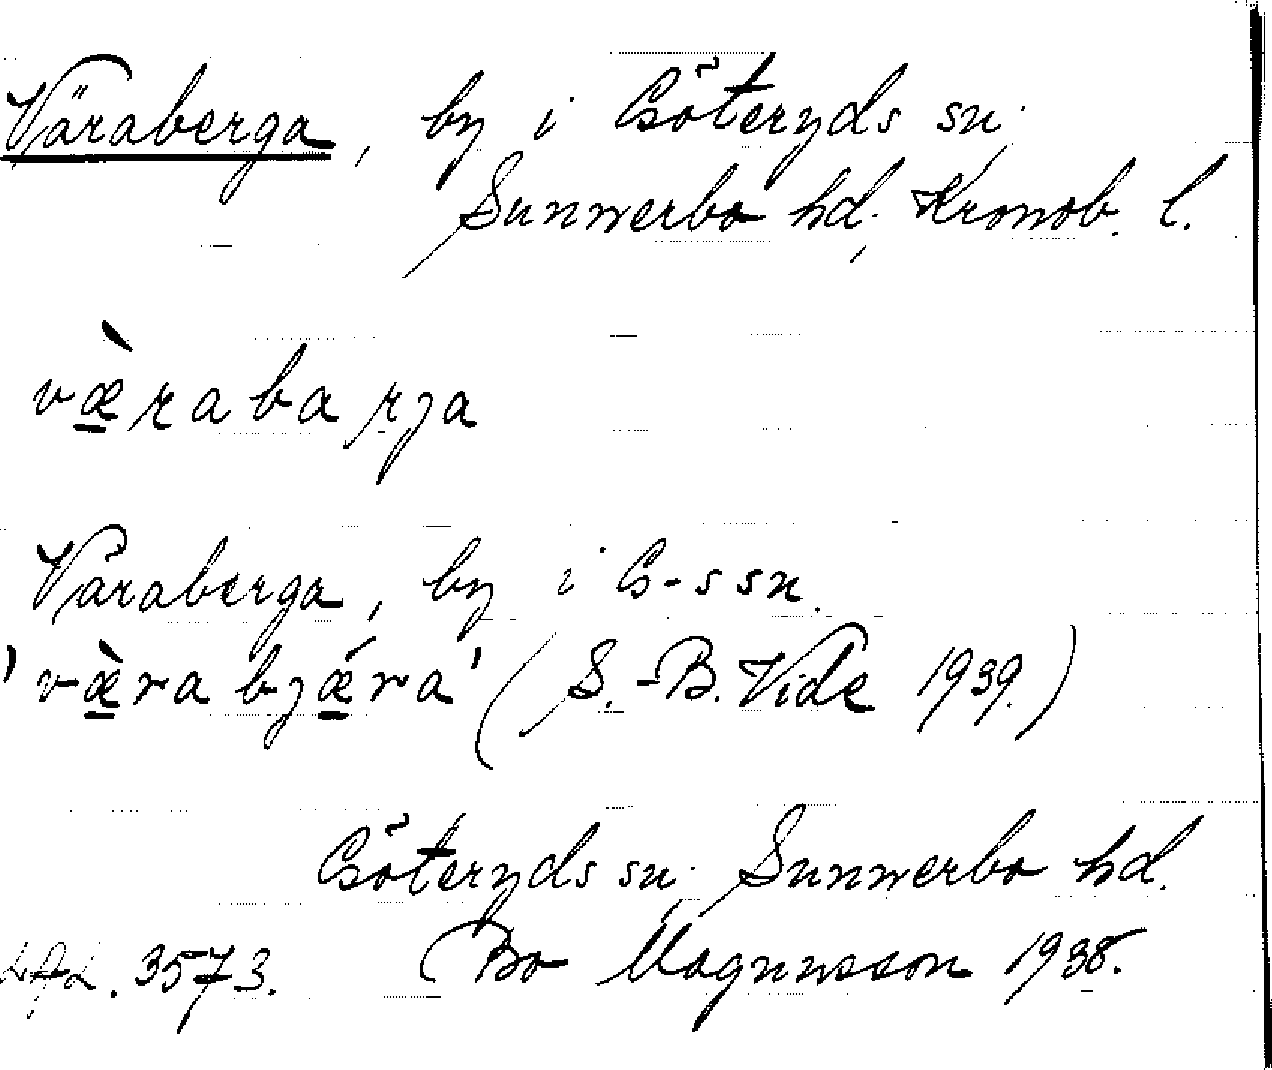 Väraberga, by i Göteryds sn.
Sunnerbo hd, Kronob. l.
væ̀rabarja
Väraberga, by i G-s sn.
'væ̀rabjǽra' (S.-B. Vide 1939.)
Göteryds sn, Sunnerbo hd.
LAL. 3573. Bo Magnusson 1938.